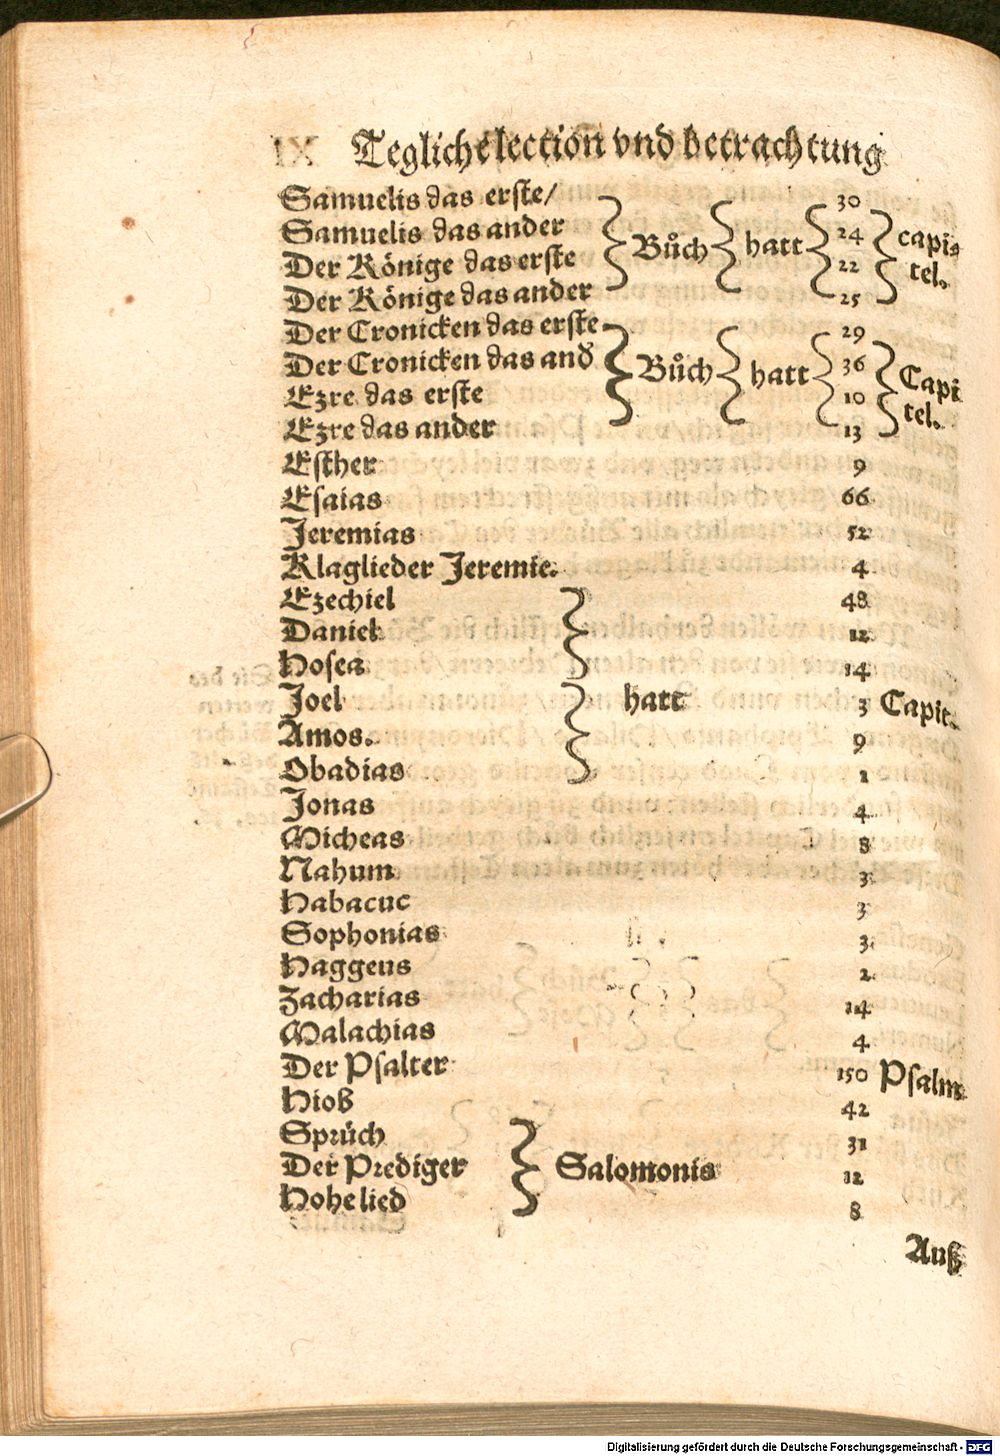 Teglich election vnd betrachtung
Samuelis das erste/ 30
Samuelis das ander Bůch hatt 24 capi-
Der Könige das erste 22 tel.
Der Könige das ander 25
Der Cronicken das erste 29
Der Cronicken das and Bůch hatt 36 Capi
Ezre das erste 10 tel.
Ezre das ander 13
Esther 9
Esaias 66
Jeremias 52
Klaglieder Jeremie. 4
Ezechiel 48
Daniel 12
Hosea 14
Joel hatt 3 Capit.
Amos. 9
Obadias 1
Jonas 4
Micheas 8
Nahum 3
Habacuc 3
Sophonias 3
Haggeus 2
Zacharias 14
Malachias 4
Der Psalter 150 Psalm
Hiob 42
Sprüch 31
Der Prediger Salomonis 12
Hohelied 8
Auß
Digitalisierung gefördert durch die Deutsche Forschungsgemeinschaft - DFG